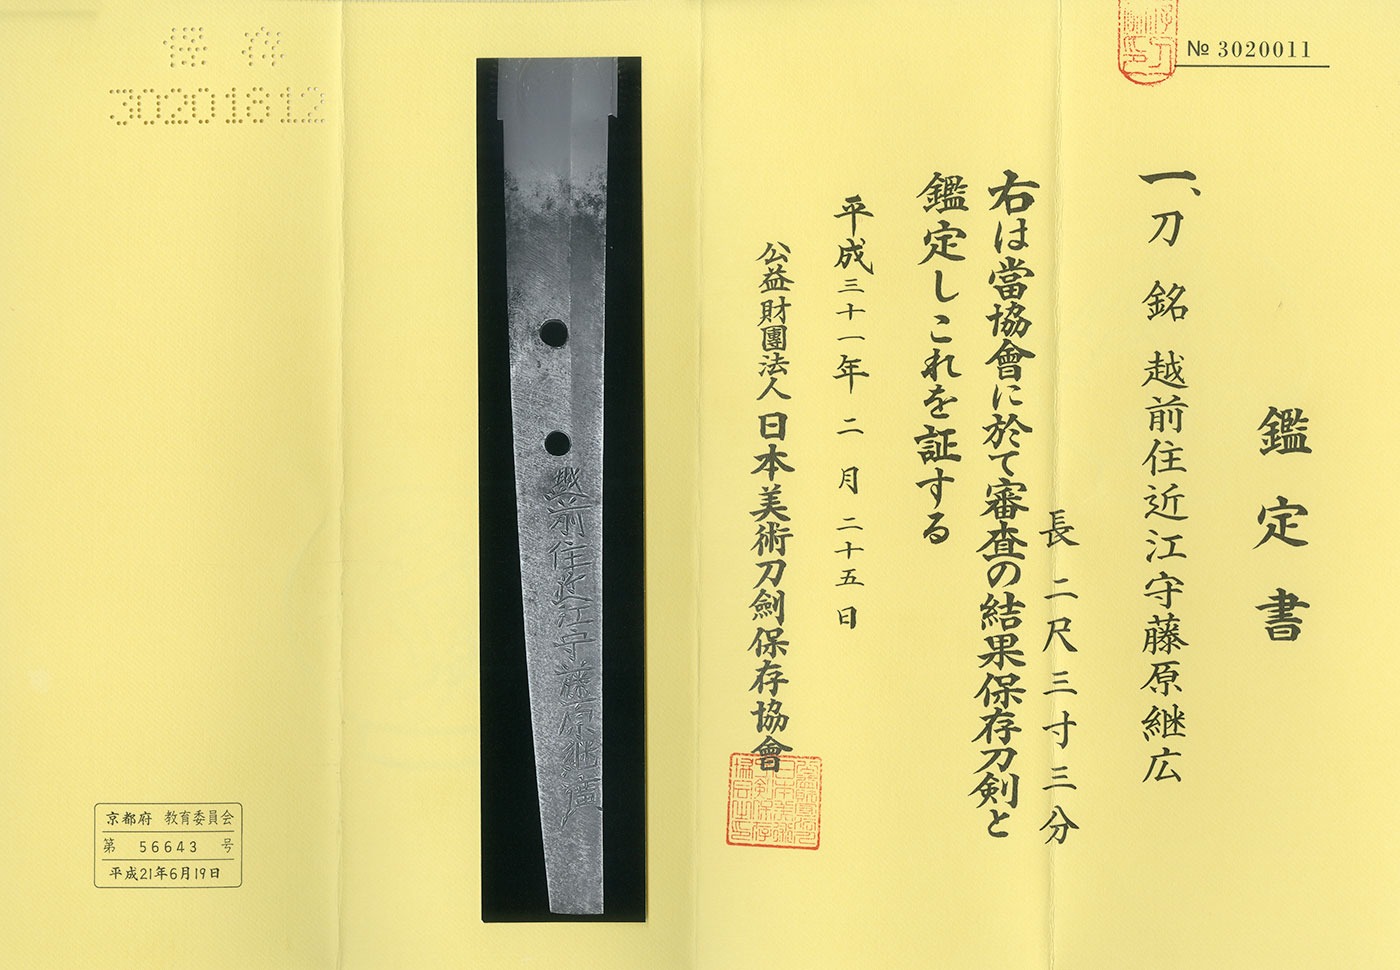 № 3020011
鑑定書
一、刀 銘 越前住近江守藤原継広
長 二尺三寸三分
右は當協會に於て審査の結果保存刀剣と
鑑定しこれを証する
平成三十一年 二月 二十五日
公益財團法人 日本美術刀劍保存協會
越前住近江守藤原継廣
保存
30201812
京都府 教育委員会
第 56643 号
平成21年6月19日